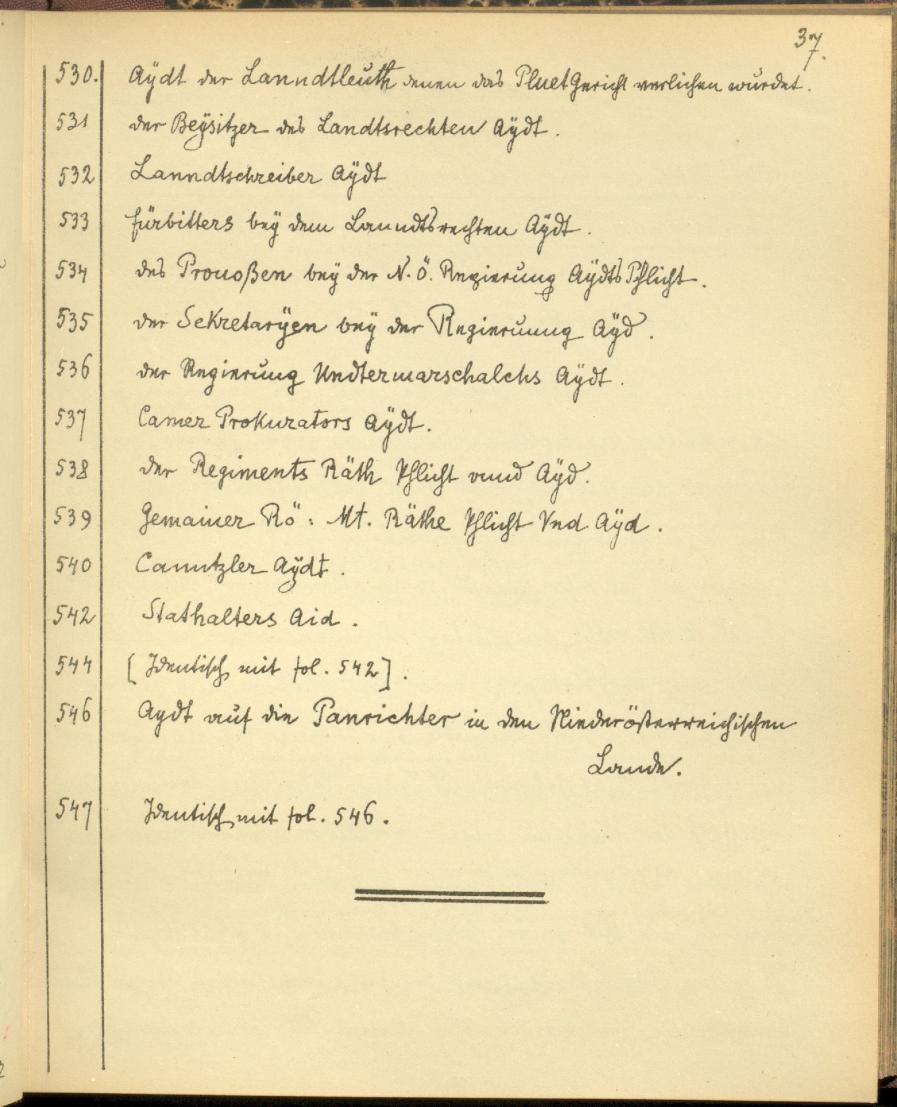 37.
530. Aÿdt der Lanndtleüth denen das PluetGericht verlichen würdet.
531 der Beÿsitzer des Landtsrechten Aÿdt.
532 Lanndtschreiber Aÿdt
533 fürbitters beÿ dem Lanndtsrechten Aÿdt.
534 des Prouoßen beÿ der N.Ö. Regierung AÿdtsPflicht.
535 der Sekretarÿen beÿ der Regieruung Aÿd.
536 der Regierung Undtermarschalchs Aÿdt.
537 Camer Prokurators Aÿdt.
538 der Regiments Räth Pflicht vnnd Aÿd.
539 Gemainer Rö: Mt. Räthe Pflicht Vnd Aÿd.
540 Canntzler Aÿdt.
542 Stathalters Aid.
544 [Identisch mit fol. 542].
546 Aydt auf die Panrichter in den Niederösterreichischen
Lande.
547 Identisch mit fol. 546.